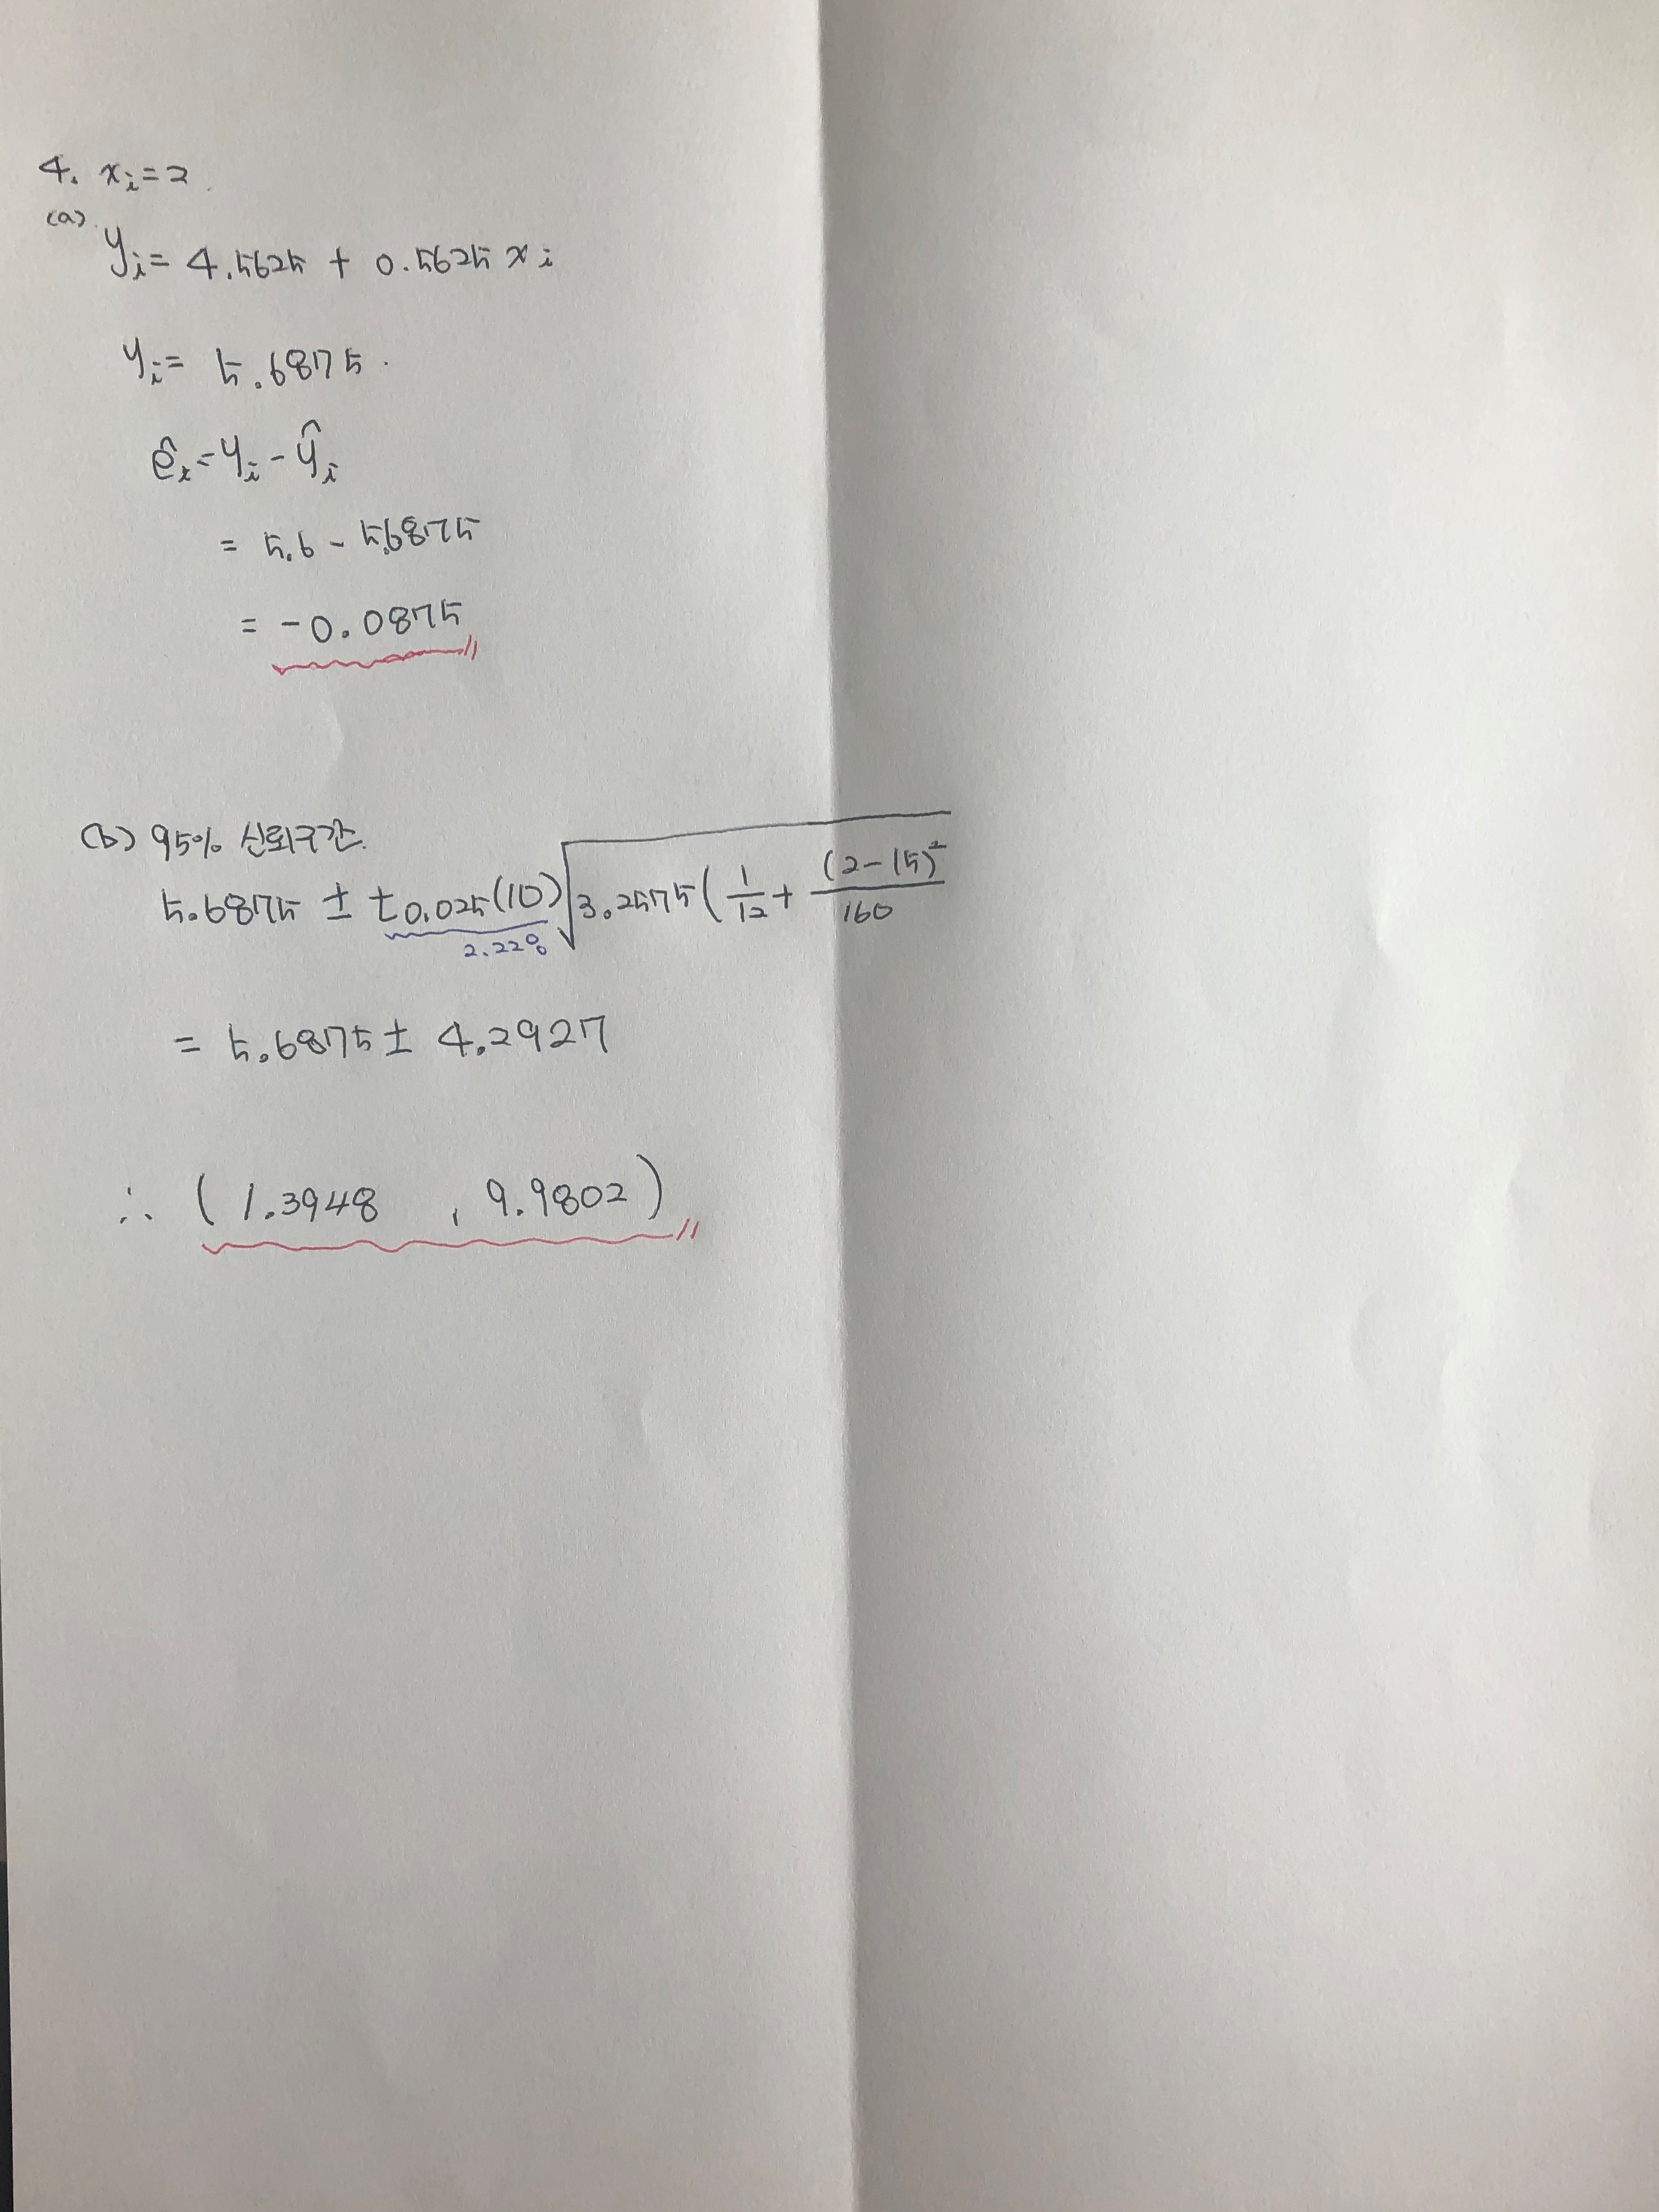 4. xᵢ=2.
(a).
yᵢ= 4.5625 + 0.5625 xᵢ
yᵢ= 5.6875.
êᵢ=yᵢ-ŷᵢ
= 5.6 - 5.6875
= -0.0875
(b) 95% 신뢰구간.
5.6875 ± t0.025(10)√3.2575(1/12 + (2-15)²/160
2.228
= 5.6875 ± 4.2927
∴ (1.3948 , 9.9802)